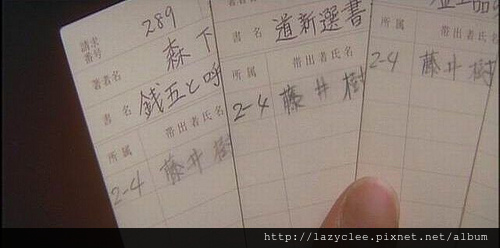 請求番号 289
著者名 森下
書名 銭五と呼
所属 帯出者氏名
2-4 藤井樹
書名 道新選書
所属 帯出者氏名
2-4 藤井樹
所属 帯出者氏名
2-4 藤井樹
http://lazyclee.pixnet.net/album